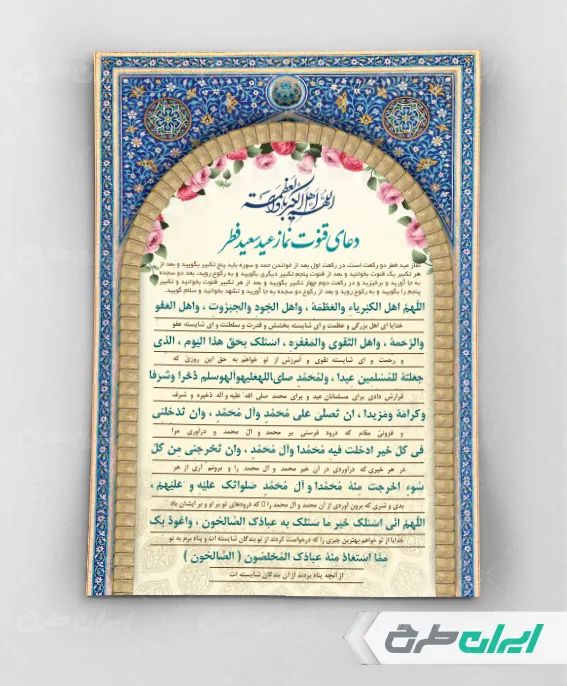 اللهم اهل الکبریاء والعظمة
دعای قنوت نماز عید سعید فطر
نماز عید فطر دو رکعت است، در رکعت اول بعد از خواندن حمد و سوره باید پنج تکبیر بگویید و بعد از
هر تکبیر یک قنوت بخوانید و بعد از قنوت پنجم تکبیر دیگری بگویید و به رکوع روید، بعد دو سجده
به جا آورید و برخیزید و در رکعت دوم چهار تکبیر بگویید و بعد از هر تکبیر قنوت بخوانید و تکبیر
پنجم را بگویید و به رکوع روید و بعد از رکوع دو سجده به جا آورید و تشهد بخوانید و سلام گویید.
اللهُمَّ اهل الکبْریاء والعَظمَهُ ، واهل الجُود والجبرُوت ، واهل العَفو
خدایا ای اهل بزرگی و عظمت و ای شایسته بخشش و قدرت و سلطنت و ای شایسته عفو
والرّحمهُ ، واهل التّقوی والمَغفره ، اسئلک بحَقّ هذا الیَوم ، الذی
و رحمت و ای شایسته تقوی و آمرزش از تو خواهم به حق این روزی که
جعلتهُ للمُسلمین عیدا ، ولمُحمّد صلی‌الله‌علیه‌وآله‌وسلم ذخرا وشرَفا
قرارش دادی برای مسلمانان عید و برای محمد صلی الله علیه و آله ذخیره و شرف
وکرامَهُ ومَزیدا ، ان تُصلیَ عَلی مُحَمَّد وآل مُحَمَّد ، وان تدْخلنی
و فزونی مقام که درود فرستی بر محمد و آل محمد و درآوری مرا
فی کلّ خیر ادخلت فیه مُحَمّدا وآل مُحَمَّد ، وان تُخرجنی من کلّ
در هر خیری که درآوردی در آن خیر محمد و آل محمد را و برونم آری از هر
سُوء اخرجت منهُ مُحَمّدا و آل مُحَمّد صَلواتُک عَلیْه و عَلیْهمْ ،
بدی و شری که برون آوردی از آن محمد و آل محمد را که درودهای تو بر او و بر ایشان باد
اللهُمَّ انّی اسئلک خیر ما سَئلک به عبادُک الصّالحُون ، واعُوذ بک
خدایا از تو خواهم بهترین چیزی را که درخواست کردند از تو بندگان شایسته ات و پناه برم به تو
ممّا استعاذ منهُ عبادُک المُخلصُون ( الصّالحُون )
از آنچه پناه بردند از آن بندگان شایسته ات
ایران طرح